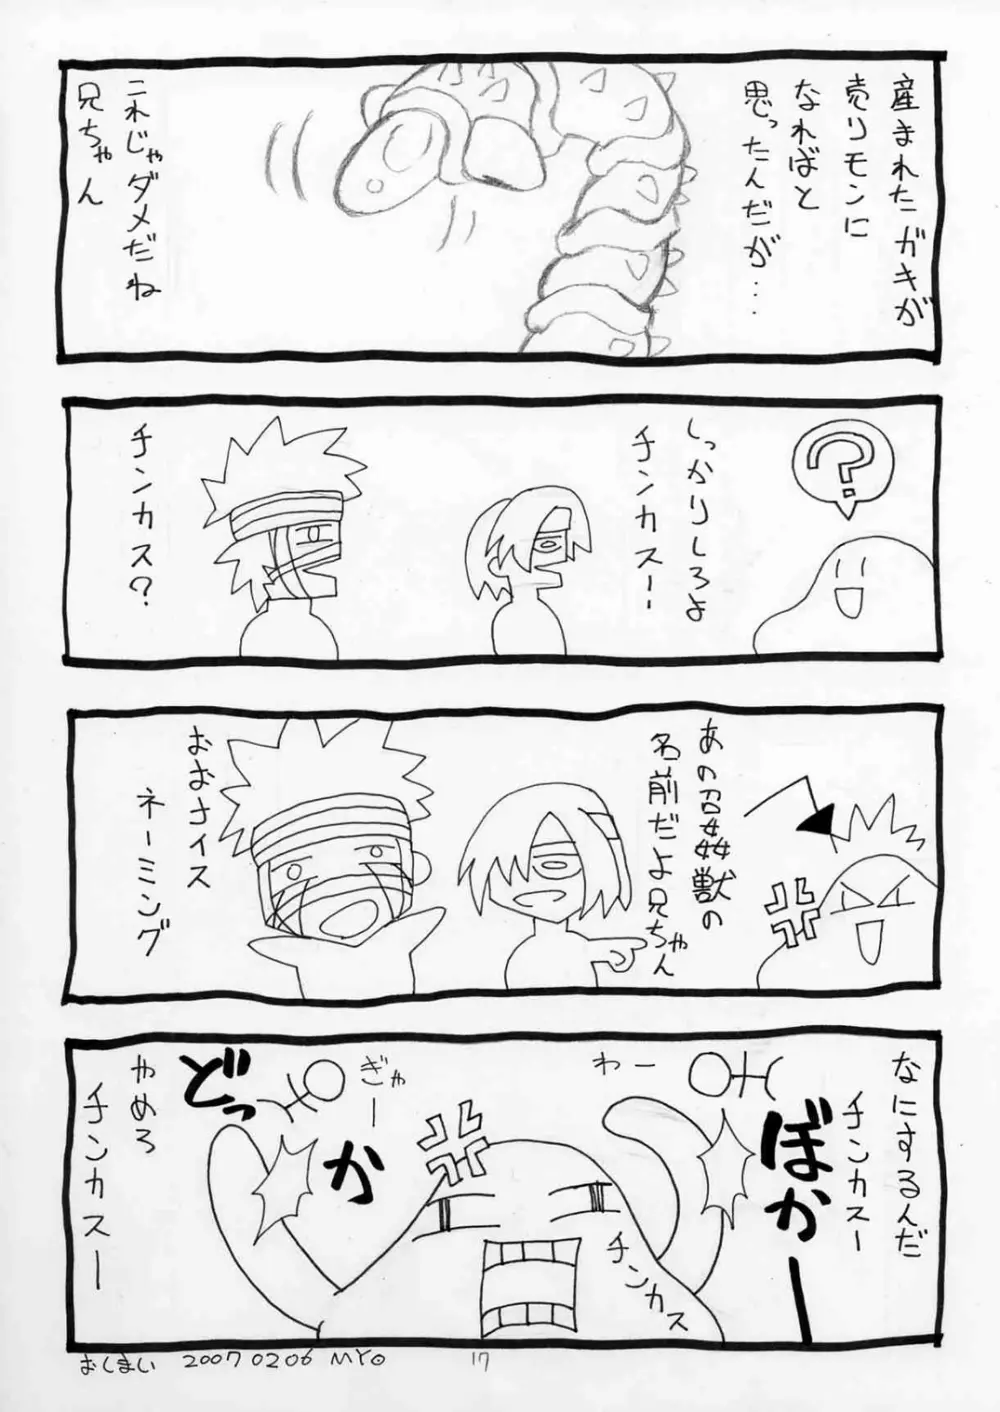 産まれたガキが
売りモンに
なればと
思ったんだが…
これじゃダメだね
兄ちゃん
?
しっかりしろよ
チンカス!
チンカス?
あの召姦獣の
名前だよ兄ちゃん
おおナイス
ネーミング
なにするんだ
チンカスー
ぼかーー
わー
ぎゃー
どっ
か
チンカス
やめろ
チンカスー
おしまい 20070206 MYO
17